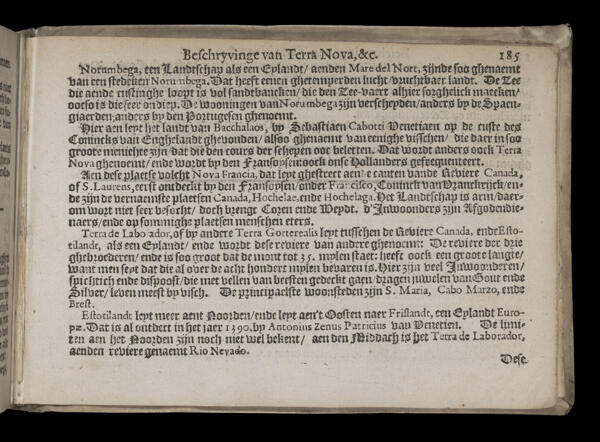 Beschryvinge van Terra Nova, &c. 185
Norumbega, een Landtschap als een Eylandt/ aenden Mare del Nort, zijnde soo ghenaemt
van een stedeken Norumbega. Dat heeft eenen ghetemperden lucht/ vruchtbaer landt. De Zee
die aende custinghe loopt is vol sandtbancken/ die den Zee-vaert alhier sorghelick maecken/
oock so is die seer ondiep. De wooningen van Norumbega zijn verscheyden/ anders by de Spaen-
giaerden, anders by den Portugesen ghenoemt.
Hier aen leyt het landt van Bacchalaos, by Sebastiaen Cabotti Venetiaen op de custe des
Conincks van Enghelandt ghevonden/ alsoo ghenaemt van eenighe visschen/ die daer in soo
groote menichte zijn dat die den cours der schepen oock beletten. Dat wordt anders oock Terra
Nova ghenoemt/ ende wordt by den Fransoysen: oock onse Hollanders gefrequenteert.
Aen dese plaetse volcht Nova Francia, dat leyt ghestreet aende canten vande Reviere Canada,
of S. Laurens, eerst ontdeckt by den Fransoysen/ onder Francisco, Coninck van Vranckrijck/ en-
de zijn de vernaemste plaetsen Canada, Hochelae, ende Hochelaga. Het Landtschap is arm/ daer-
om wort niet seer besocht/ doch brenge Coren ende Weydt. d'Inwoonders zijn Afgodendie-
naers/ ende op sommighe plaetsen menschen eters.
Terra de Labo ador, of by andere Terra Gorterealis leyt tusschen de Reviere Canada, ende Esto-
tilande, als een Eylandt/ ende wordt dese reviere van andere ghenoemt: De reviere der drie
ghebroederen/ ende is soo groot dat de mont tot 35. mylen staet: heeft oock een groote langte/
want men seyt dat die al over de acht hondert mylen bevaren is. Hier zijn veel Inwoonderen/
spichtich ende dispoost/ die met vellen van beesten gedeckt gaen/ dragen juwelen van Gout ende
Silver/ leven meest by visch. De principaelste woonsteden zijn S. Maria, Cabo Marzo, ende
Brest.
Estotilandt leyt meer aent Noorden/ ende leyt aen't Oosten naer Frislandt, een Eylandt Euro-
pæ. Dat is al ontdect in het jaer 1390. by Antonius Zenus Patricius van Venetien. De limi-
ten aen het Noorden zijn noch niet wel bekent/ aen den Middach is het Terra de Laborador,
aenden reviere genaemt Rio Nevado.
Dese